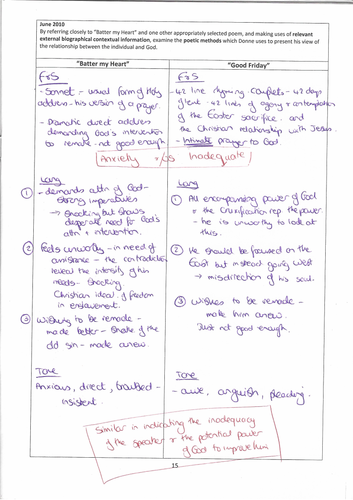 June 2010
By referring closely to "Batter my Heart" and one other appropriately selected poem, and making uses of relevant
external biographical contextual information, examine the poetic methods which Donne uses to present his view of
the relationship between the individual and God.
"Batter my Heart"
F+S
- Sonnet - usual form of Holy
address - his version of a prayer.
- Dramatic direct address
demanding God's intervention
to remake - not good enough
"Good Friday"
F+S
- 42 line rhyming couplets - 42 days
of lent. 42 lines of agony + contemplation
of the Easter sacrifice. and
the Christian relationship with Jesus.
- Intimate prayer to God.
Anxiety - Inadequate
Lang
① - demands attn of God -
strong imperatives
→ shocking but shows
desperate need for God's
attn + intervention.
② Feels unworthy - in need of
assistance - the contradictions
reveal the intensity of his
needs - shocking
Christian ideal of freedom
in enslavement.
③ Wishing to be remade -
made better - shake of the
old sin - made anew.
Lang
① All encompassing power of God
+ the Crucifixion rep the power
- he is unworthy to look at
this.
② He should be focused on the
East but instead going west
→ misdirection of his soul.
③ Wishes to be remade -
make him anew.
Just not good enough.
Tone
Anxious, direct, troubled -
insistent.
Tone
- awe, anguish, pleading.
Similar in indicating the inadequacy
of the speaker + the potential power
of God to improve him
15